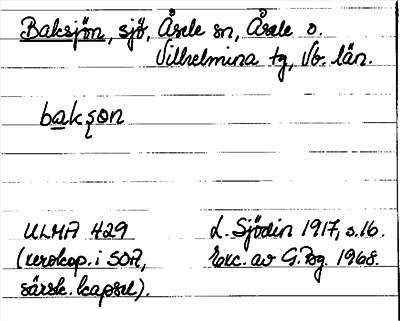 Baksjön, sjö, Åsele sn, Åsele o.
Vilhelmina tg, Vb. län.
bakşon
ULMA 429
(xerokop. i SOA,
särsk. kapsel).
L. Sjödin 1917, s.16.
Exc. av G. Bg. 1968.